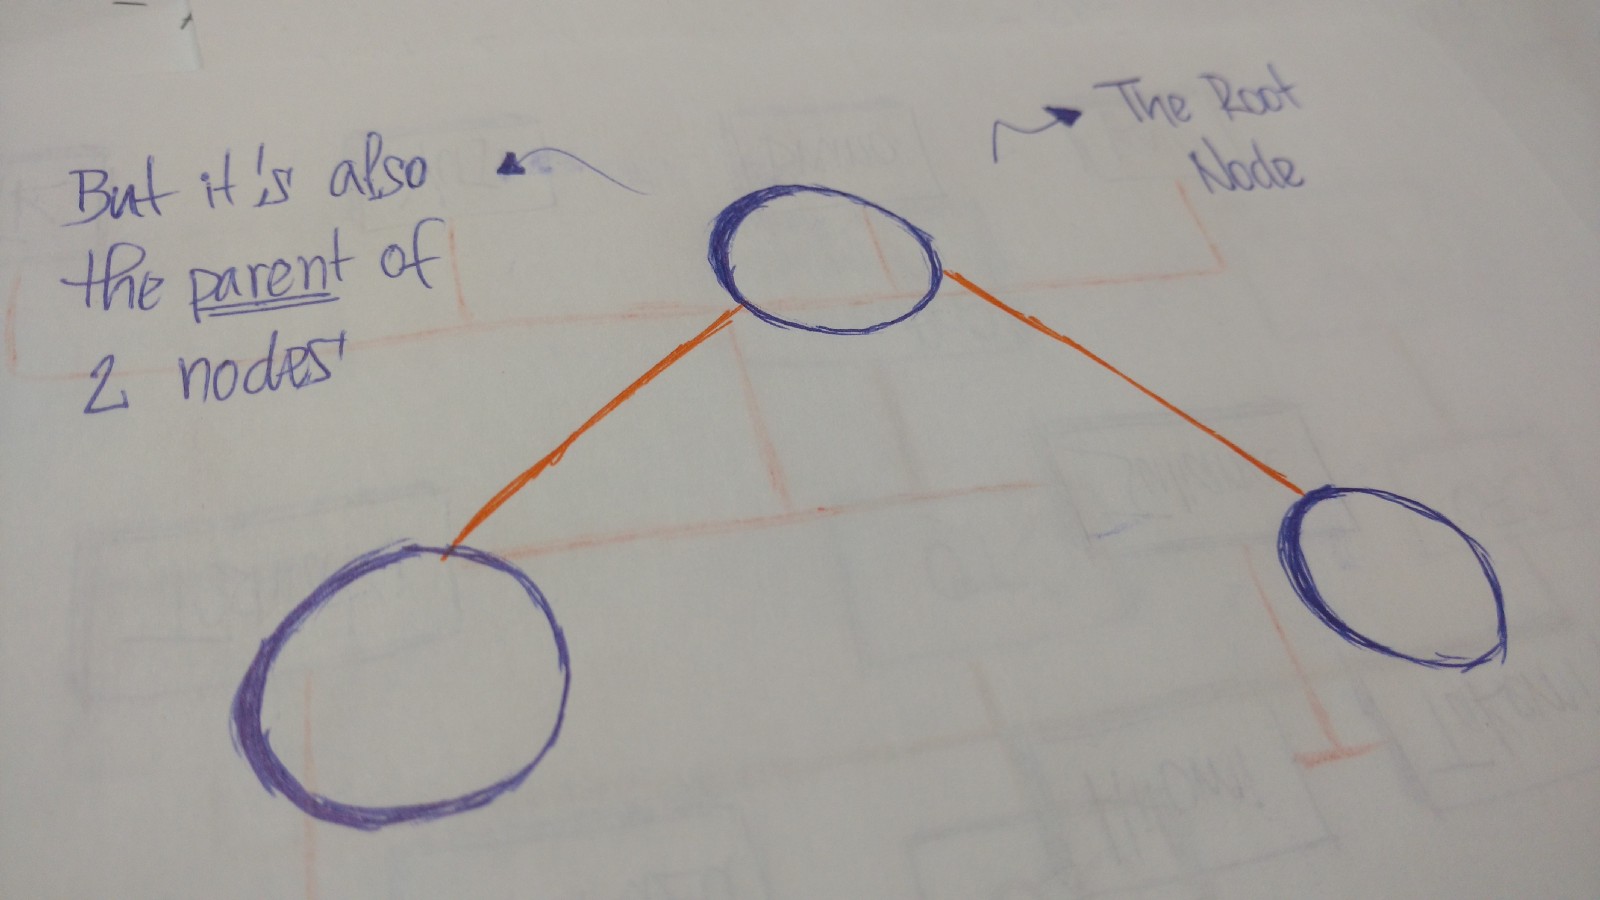 The Root
Node
But it's also
the parent of
2 nodes